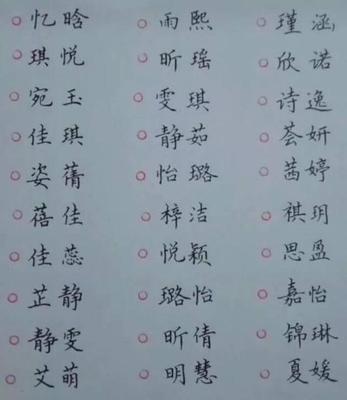 忆晗 雨熙 瑾涵
琪悦 昕瑶 欣诺
宛玉 雯琪 诗逸
佳琪 静茹 荟妍
姿蒨 怡璐 茜婷
蓓佳 梓洁 祺玥
佳蕊 悦颖 思盈
芷静 璐怡 嘉怡
静雯 昕倩 锦琳
艾萌 明慧 夏媛